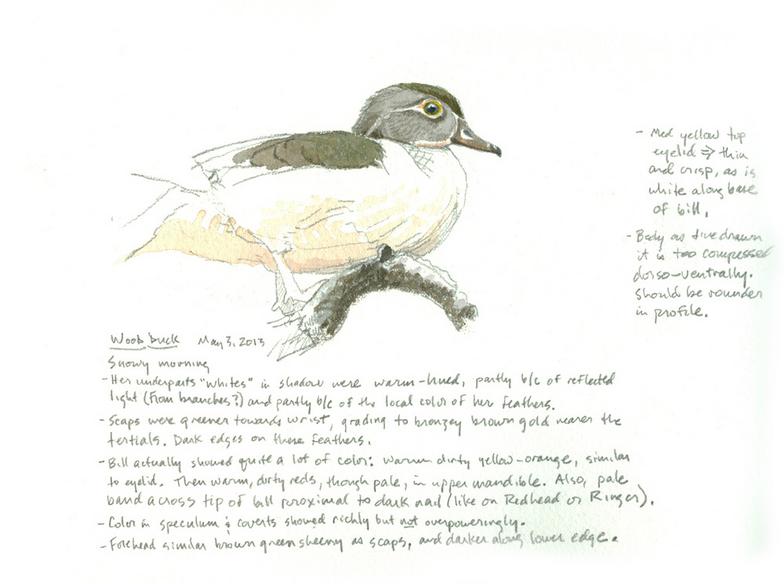 - Med yellow top
eyelid ⇒ thin
and crisp, as is
white along base
of bill.
- Body as I've drawn
it is too compressed
dorso-ventrally.
Should be rounder
in profile.
Wood Duck May 3, 2013
Snowy morning
- Her underparts "whites" in shadow were warm-hued, partly b/c of reflected
light (from branches?) and partly b/c of the local color of her feathers.
- Scaps were greener towards wrist, grading to bronzey brown gold nearer the
tertials. Dark edges on these feathers.
- Bill actually showed quite a lot of color: warm dirty yellow-orange, similar
to eyelid. Then warm, dirty reds, though pale, in upper mandible. Also, pale
band across tip of bill proximal to dark nail (like on Redhead or Ringer).
- Color in speculum & coverts showed richly but not overpoweringly.
- Forehead similar brown green sheeny as scaps, and darker along lower edge.